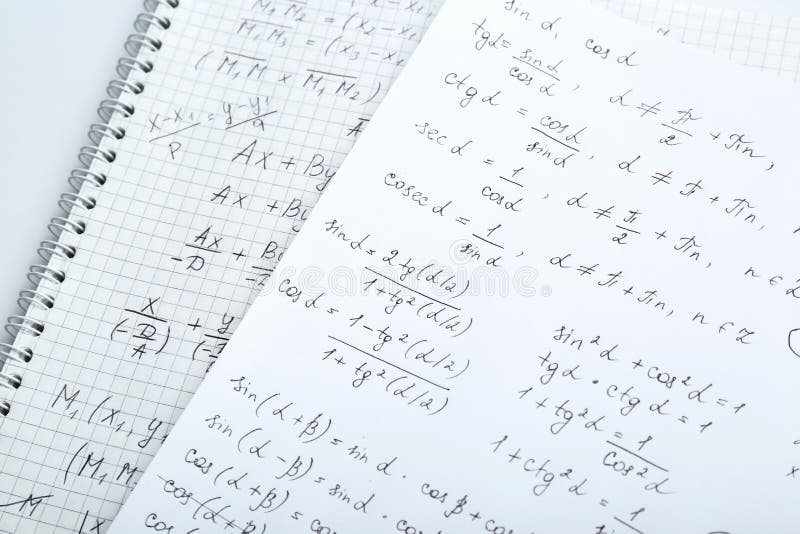 M₁M₂ = (x₂ - x₁
M₁M₃ = (x₃ - x₁
(M₁M × M₁M₂)
x-x₁/p = y-y₁/a
Ax + By
Ax + By
Ax/-D + B
x/(-D/A) + y/(-
M₁(x₁, y
(M₁M
M
sin α, cos α
tg α = sin α/cos α, α ≠ π/2 + πn,
ctg α = cos α/sin α, α ≠ π + πn,
sec α = 1/cos α, α ≠ π/2 + πn, n ∈ Z
cosec α = 1/sin α, α ≠ π + πn, n ∈ Z
sin α = 2tg(α/2)/1+tg²(α/2)
cos α = 1-tg²(α/2)/1+tg²(α/2)
sin²α + cos²α = 1
tg α · ctg α = 1
1 + tg²α = 1/cos²α
1 + ctg²α = 1/sin
sin(α+β) = sin α · cos β + cos
sin(α-β) = sin α · cos
cos(α+β) = cos α · co
cos(α+β) = cos
dreamstime